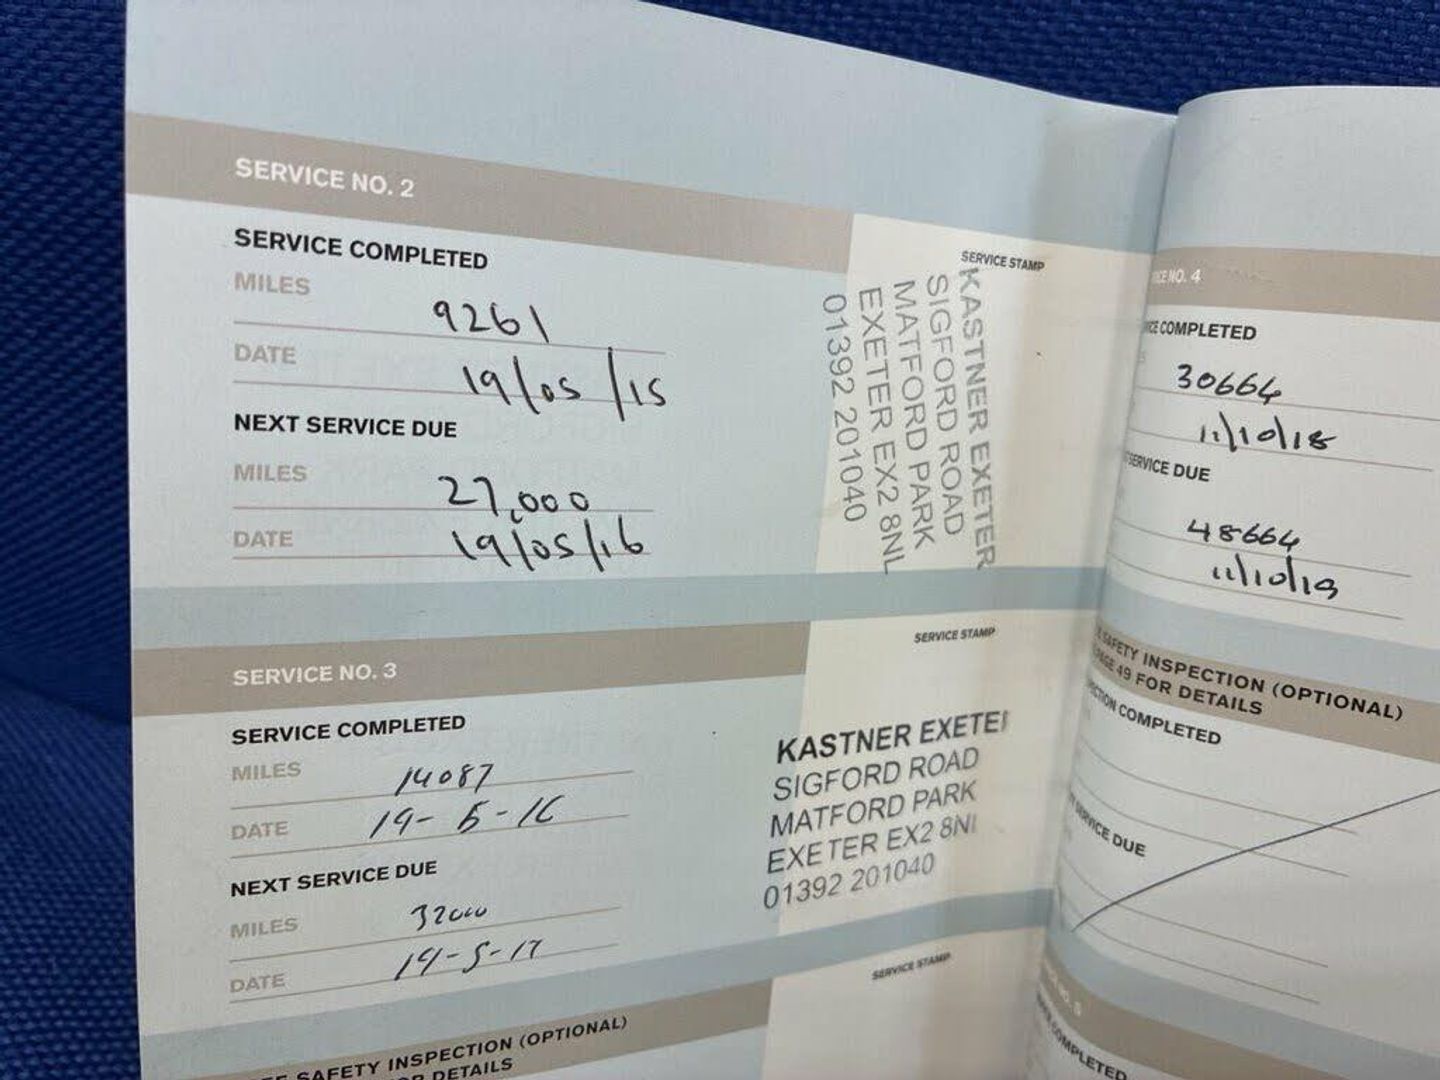 SERVICE NO. 2
SERVICE COMPLETED
MILES 9261
DATE 19/05/15
NEXT SERVICE DUE
MILES 27,000
DATE 19/05/16
SERVICE STAMP
KASTNER EXETER
SIGFORD ROAD
MATFORD PARK
EXETER EX2 8NL
01392 201040
SERVICE NO. 3
SERVICE COMPLETED
MILES 14087
DATE 19-5-16
NEXT SERVICE DUE
MILES 32000
DATE 19-5-17
SERVICE STAMP
KASTNER EXETE
SIGFORD ROAD
MATFORD PARK
EXETER EX2 8N
01392 201040
SAFETY INSPECTION (OPTIONAL)
DETAILS
SERVICE STAMP
NO. 4
COMPLETED
30664
11/10/18
SERVICE DUE
48664
11/10/19
SAFETY INSPECTION (OPTIONAL)
PAGE 49 FOR DETAILS
COMPLETED
SERVICE DUE